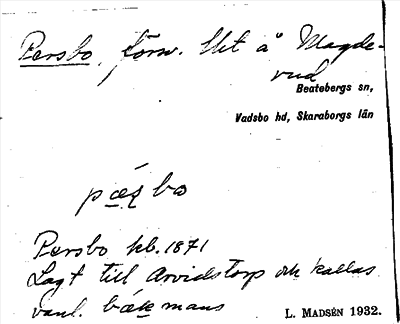 Persbo, försv. lht å Magde-
rud
Beatebergs sn,
Vadsbo hd, Skaraborgs län
pæ̨ʂbo
Persbo kb. 1871
Lagt till Arvidstorp och kallas
vanl. bækmans
L. MADSÉN 1932.